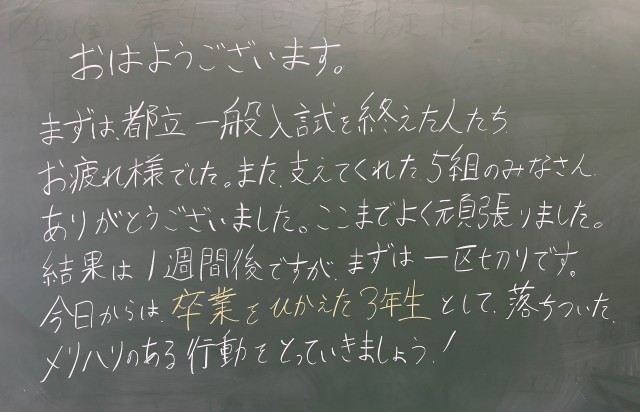 おはようございます。
まずは、都立一般入試を終えた人たち、
お疲れ様でした。また、支えてくれた5組のみなさん、
ありがとうございました。ここまでよく頑張りました。
結果は1週間後ですが、まずは一区切りです。
今日からは、卒業をひかえた3年生として、落ちついた、
メリハリのある行動をとっていきましょう!